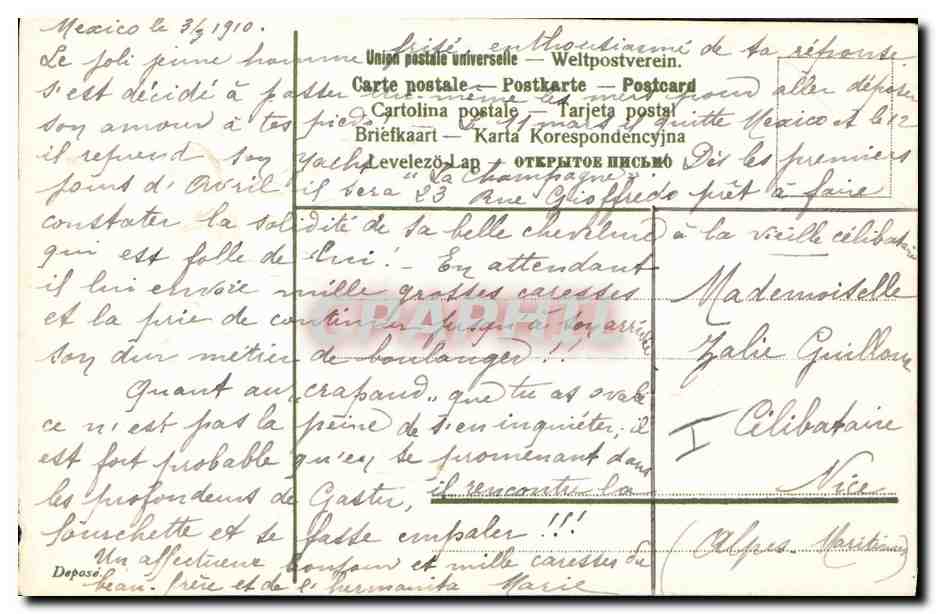 Mexico le 3/3 1910.
Le joli jeune homme frisé, enthousiasmé de ta réponse
s'est décidé à passer lui même les mers pour aller déposer
son amour à tes pieds. Le 11 mars il quitte Mexico et le 12
il reprend son yacht "La Champagne". Dès les premiers
jours d'Avril il sera 23 Rue Gioffredo prêt à faire
constater la solidité de sa belle chevelure
qui est folle de lui! - En attendant
il lui envoie mille grosses caresses
et la prie de continuer jusqu'à son arrivée
son dur métier de boulanger!!
Quant au "crapaud" que tu as avalé
ce n'est pas la peine de s'en inquiéter; il
est fort probable qu'en se promenant dans
les profondeurs de Gaster, il rencontre la
fourchette et se fasse empaler!!!
Un affectueux bonjour et mille caresses du
beau-frère et de l'hermanita Marie
Union postale universelle — Weltpostverein.
Carte postale — Postkarte — Postcard
Cartolina postale — Tarjeta postal
Briefkaart — Karta Korespondencyjna
Levelező-Lap — ОТКРЫТОЕ ПИСЬМО
à la vieille célibataire
Mademoiselle
Zalie
Célibataire
Nice
(Alpes-Maritimes)
Deposé.
CPAPHIL